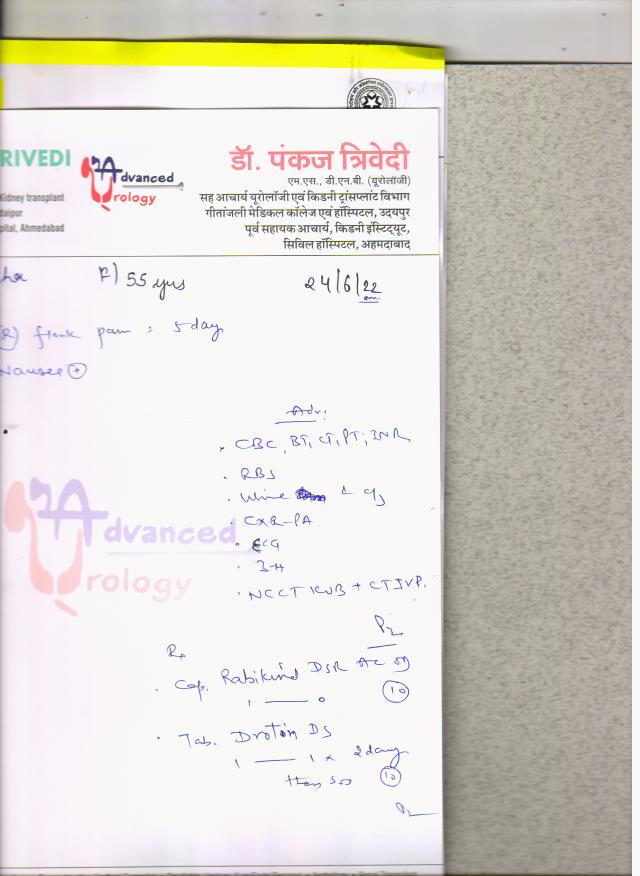 RIVEDI
Kidney transplant
daipur
pital, Ahmedabad
Advanced
Urology
डॉ. पंकज त्रिवेदी
एम.एस., डी.एन.बी. (यूरोलॉजी)
सह आचार्य यूरोलॉजी एवं किडनी ट्रांसप्लांट विभाग
गीतांजली मेडिकल कॉलेज एवं हॉस्पिटल, उदयपुर
पूर्व सहायक आचार्य, किडनी इंस्टिट्यूट,
सिविल हॉस्पिटल, अहमदाबाद
F) 55 yrs
24/6/22
R) flank pain : 5 day
Nausea +
Adv:
CBC, BT, CT, PT, INR
RBS
Urine
CXR-PA
ECG
NCCT KUB + CT IVP.
Advanced
Urology
Rx
Cap. Rabikind DSR AC OD
1 — 0
10
Tab. Drotin DS
1 — 1 x 2 days
then SOS
10